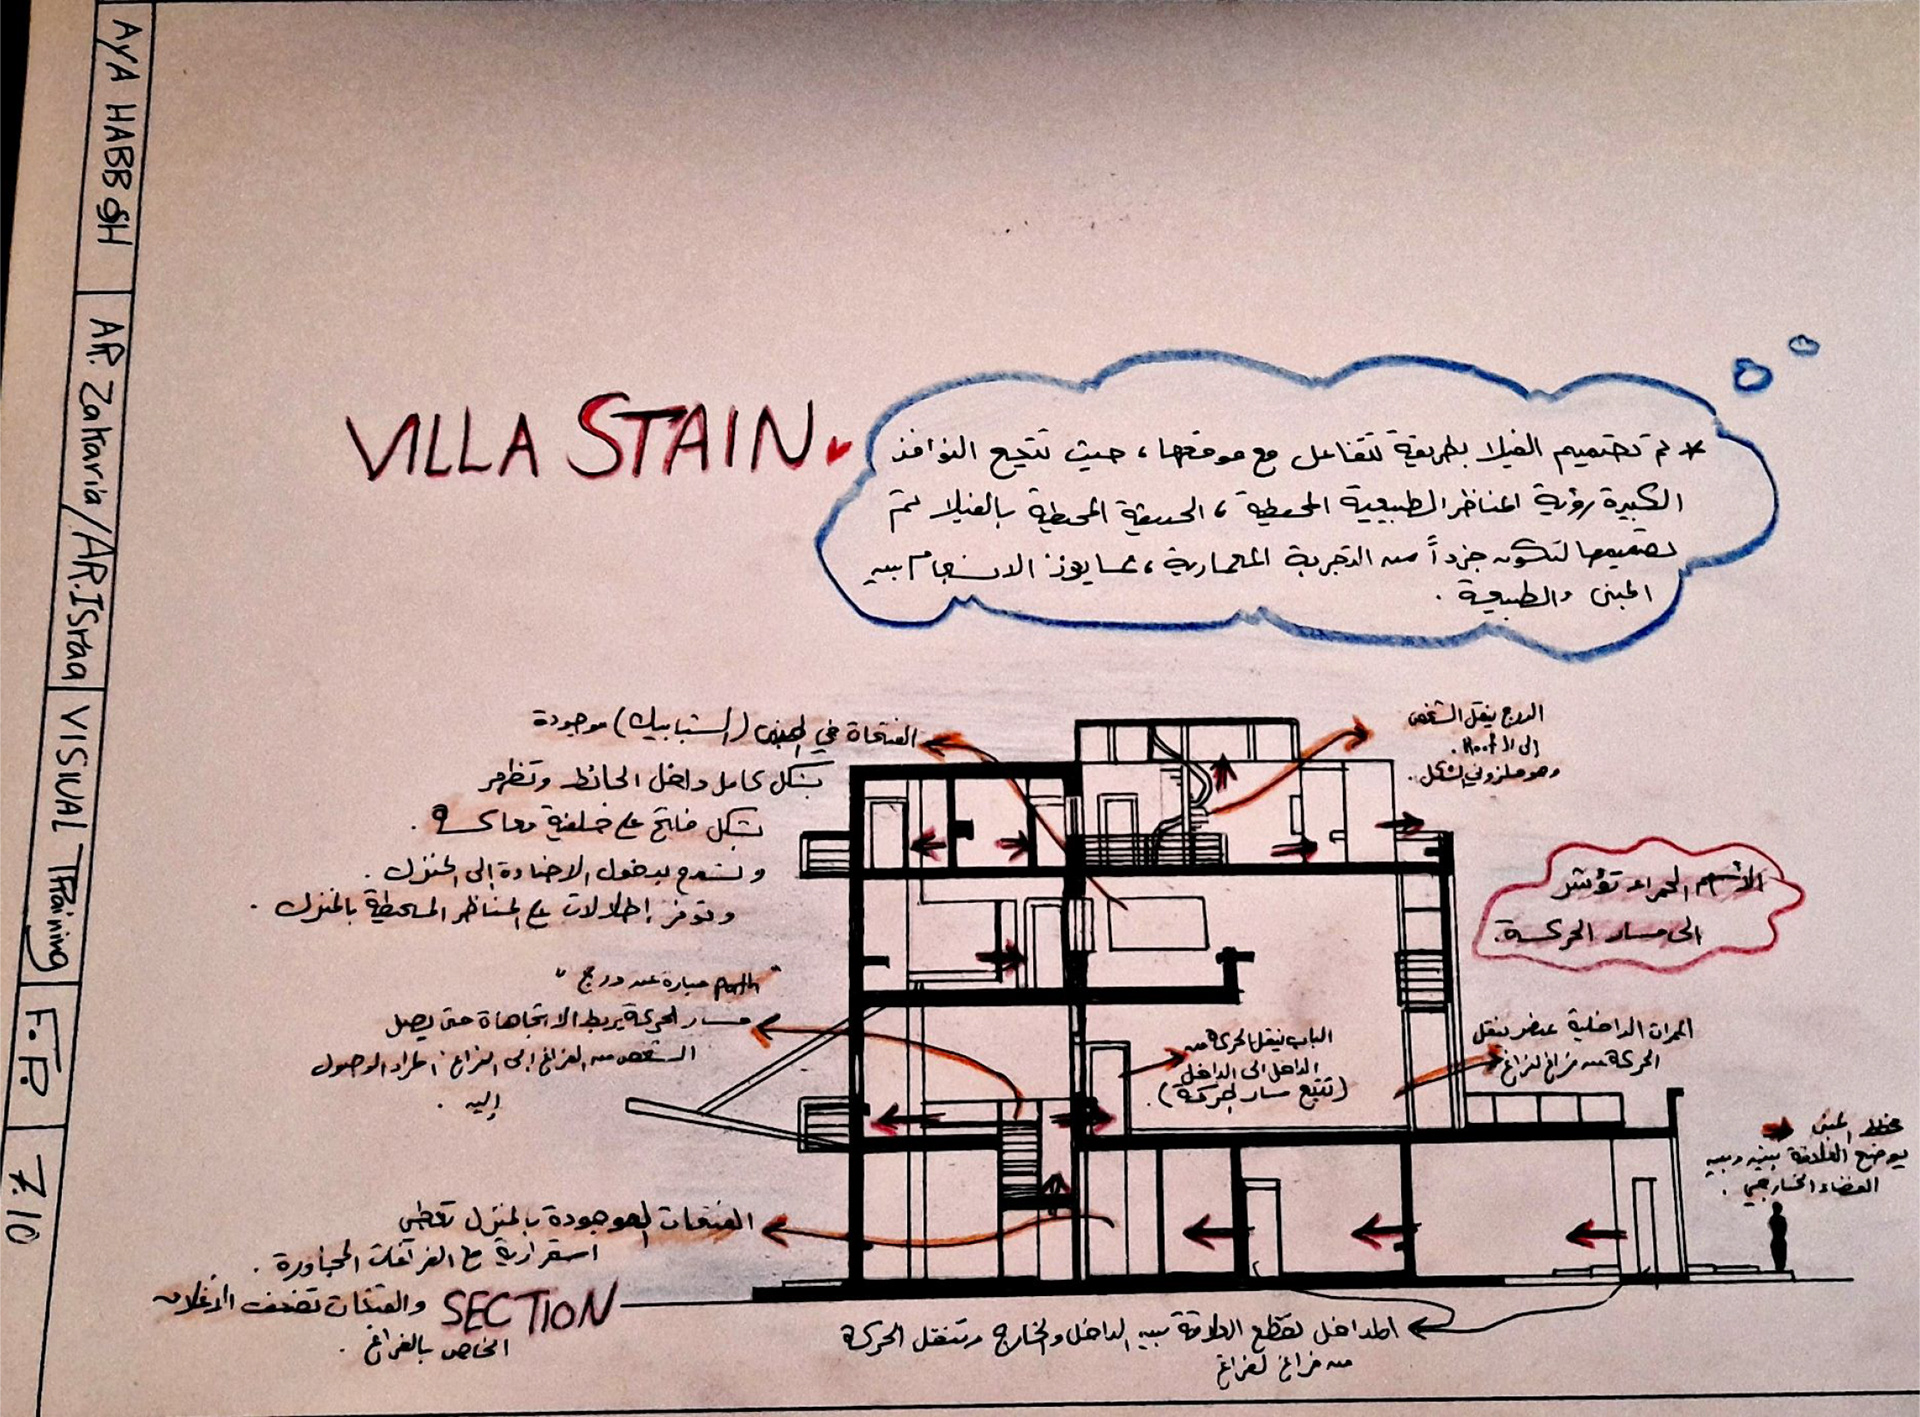 AYA HABBOSH
AR. Zakaria/AR.ISraa
VISIUAL TRaining
F.P.
7.10
VILLA STAIN
* تم تصميم الفيلا بطريقة تتفاعل مع موقعها، حيث تتيح النوافذ
الكبيرة رؤية المناظر الطبيعية المحيطة، الحديقة المحيطة بالفيلا تم
تصميمها لتكون جزءاً من التجربة المعمارية، مما يعزز الانسجام بين
المبنى والطبيعة.
الفتحات في المبنى (الشبابيك) موجودة
بشكل كامل داخل الحائط وتظهر
بشكل فاتح على خلفية
وتسمح بدخول الاضاءة إلى المنزل.
وتوفر إطلالات على المناظر المحيطة بالمنزل.
الدرج ينقل الشخص
إلى الـ Roof.
وهو حلزوني الشكل.
الأسهم الحمراء تؤشر
الى مسار الحركة.
"Path عبارة عن درج"
مسار الحركة يربط الاتجاهات حتى يصل
الشخص من الفراغ إلى الفراغ المراد الوصول
إليه.
الباب ينقل الحركة من
الداخل الى الداخل
(تتبع مسار الحركة).
الممرات الداخلية عنصر ينقل
الحركة من فراغ لفراغ
المبنى
يوضح العلاقة بينه وبين
الفضاء الخارجي.
الفتحات الموجودة بالمنزل تعطي
استقرارية مع الفراغات المجاورة.
والفتحات تضعف الانغلاق
الخاص بالفراغ.
SECTION
المداخل تقطع العلاقة بين الداخل والخارج وتنقل الحركة
من فراغ لفراغ